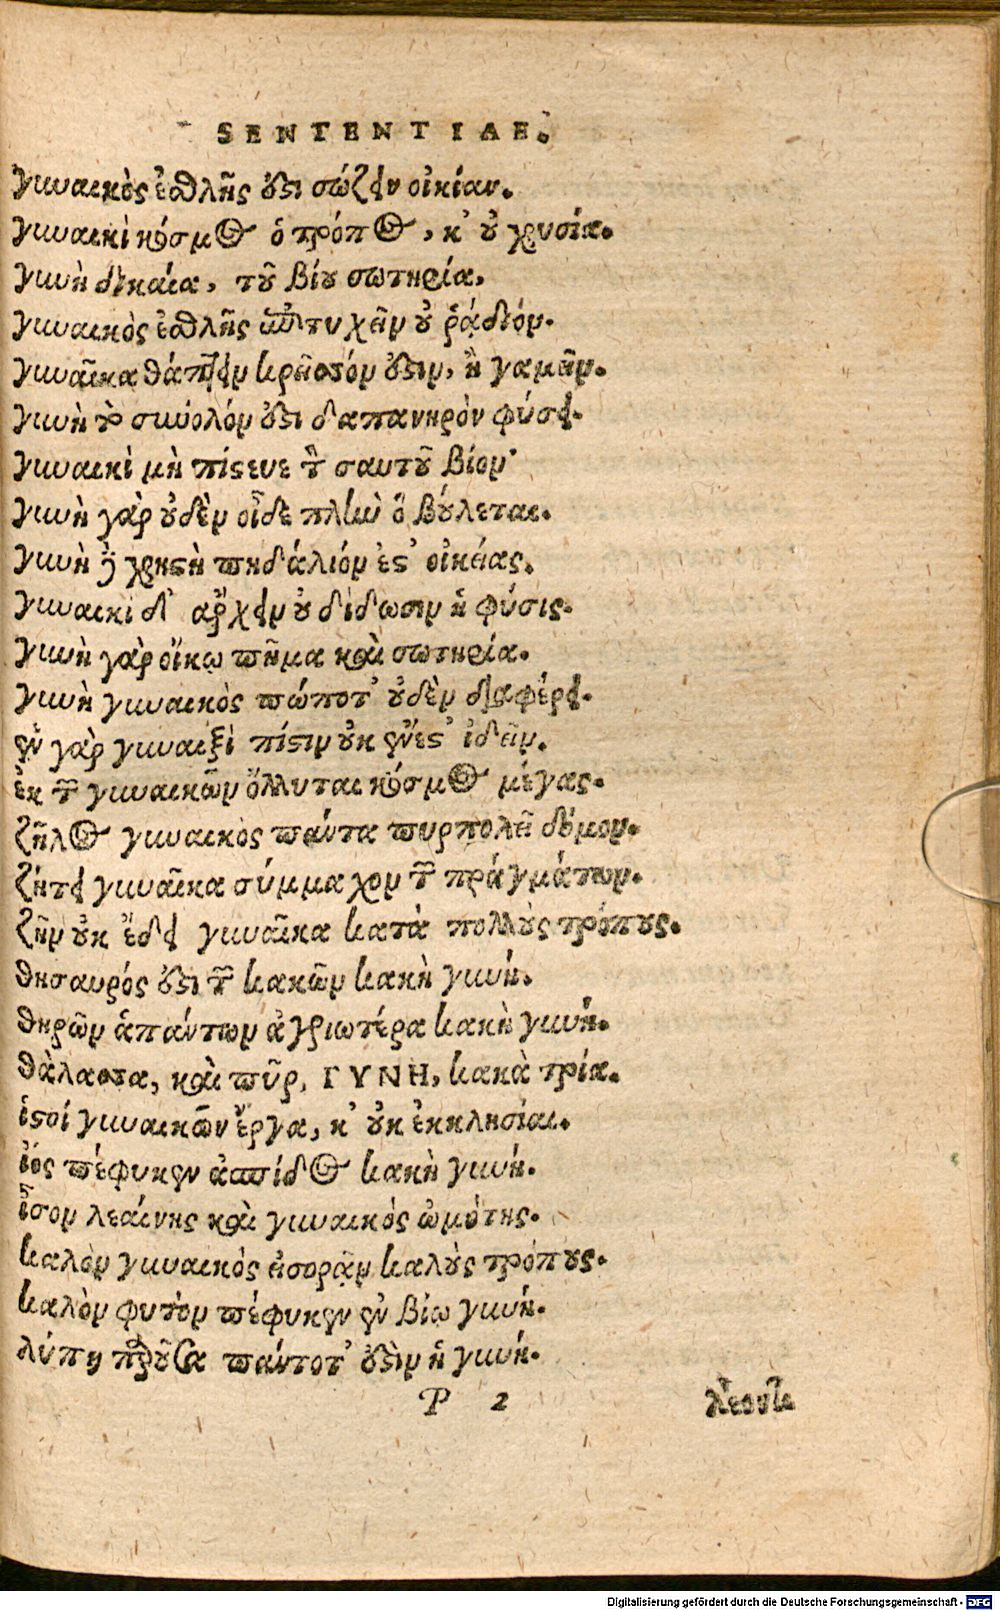 SENTENTIAE.
γυναικὸς ἐσθλῆς ὅξι σώζειν οἰκίαν.
γυναικὶ κόσμος ὁ τρόπος, κ' οὐ χρυσία.
γυνὴ δικαία, τοῦ βίου σωτηρία,
γυναικὸς ἐσθλῆς ἐπιτυχεῖν οὐ ῥᾴδιόν.
γυναῖκα θάπτειν κρεῖσσόν ἐστιν, ἢ γαμεῖν.
γυνὴ τὸ σύνολόν ἐστι δαπανηρὸν φύσει.
γυναικὶ μὴ πίστευε τὸν σαυτοῦ βίον·
γυνὴ γὰρ οὐδὲν οἶδε πλὴν ὃ βούλεται.
γυνὴ ἡ χρηστὴ πηδάλιόν ἐστ' οἰκείας.
γυναικὶ δ' ἄρχειν οὐ δίδωσιν ἡ φύσις.
γυνὴ γὰρ οἴκῳ πῆμα καὶ σωτηρία.
γυνὴ γυναικὸς πώποτ' οὐδὲν διαφέρει.
ἐν γὰρ γυναιξὶ πίστιν οὐκ ἔνεστ' ἰδεῖν.
ἐκ τῶν γυναικῶν ὄλλυται κόσμος μέγας.
ζῆλος γυναικὸς πάντα πυρπολεῖ δόμον.
ζήτει γυναῖκα σύμμαχον τῶν πραγμάτων.
ζῆν οὐκ ἔδει γυναῖκα κατὰ πολλοὺς τρόπους.
θησαυρός ἐστι τῶν κακῶν κακὴ γυνή.
θηρῶν ἁπάντων ἀγριωτέρα κακὴ γυνή.
θάλασσα, καὶ πῦρ, ΓΥΝΗ, κακὰ τρία.
ἱστοί γυναικῶν ἔργα, κ' οὐκ ἐκκλησίαι.
ἰὸς πέφυκεν ἀσπίδος κακὴ γυνή.
ἶσον λεαίνης καὶ γυναικός ὠμότης.
καλὸν γυναικὸς εἰσορᾷν καλοὺς τρόπους.
καλὸν φυτὸν πέφυκεν ἐν βίῳ γυνή.
λύπη παροῦσα πάντοτ' ἐστὶν ἡ γυνή.
P 2